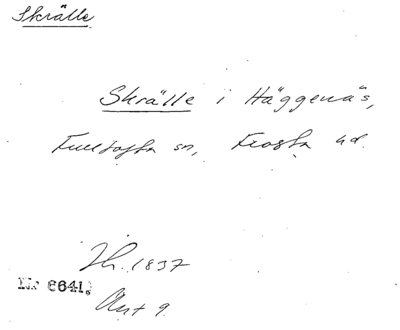 Skrälle
Skrälle i Häggenäs,
Fulltofta sn, Frosta hd.
Jh. 1837
No 6641.
Akt 9.